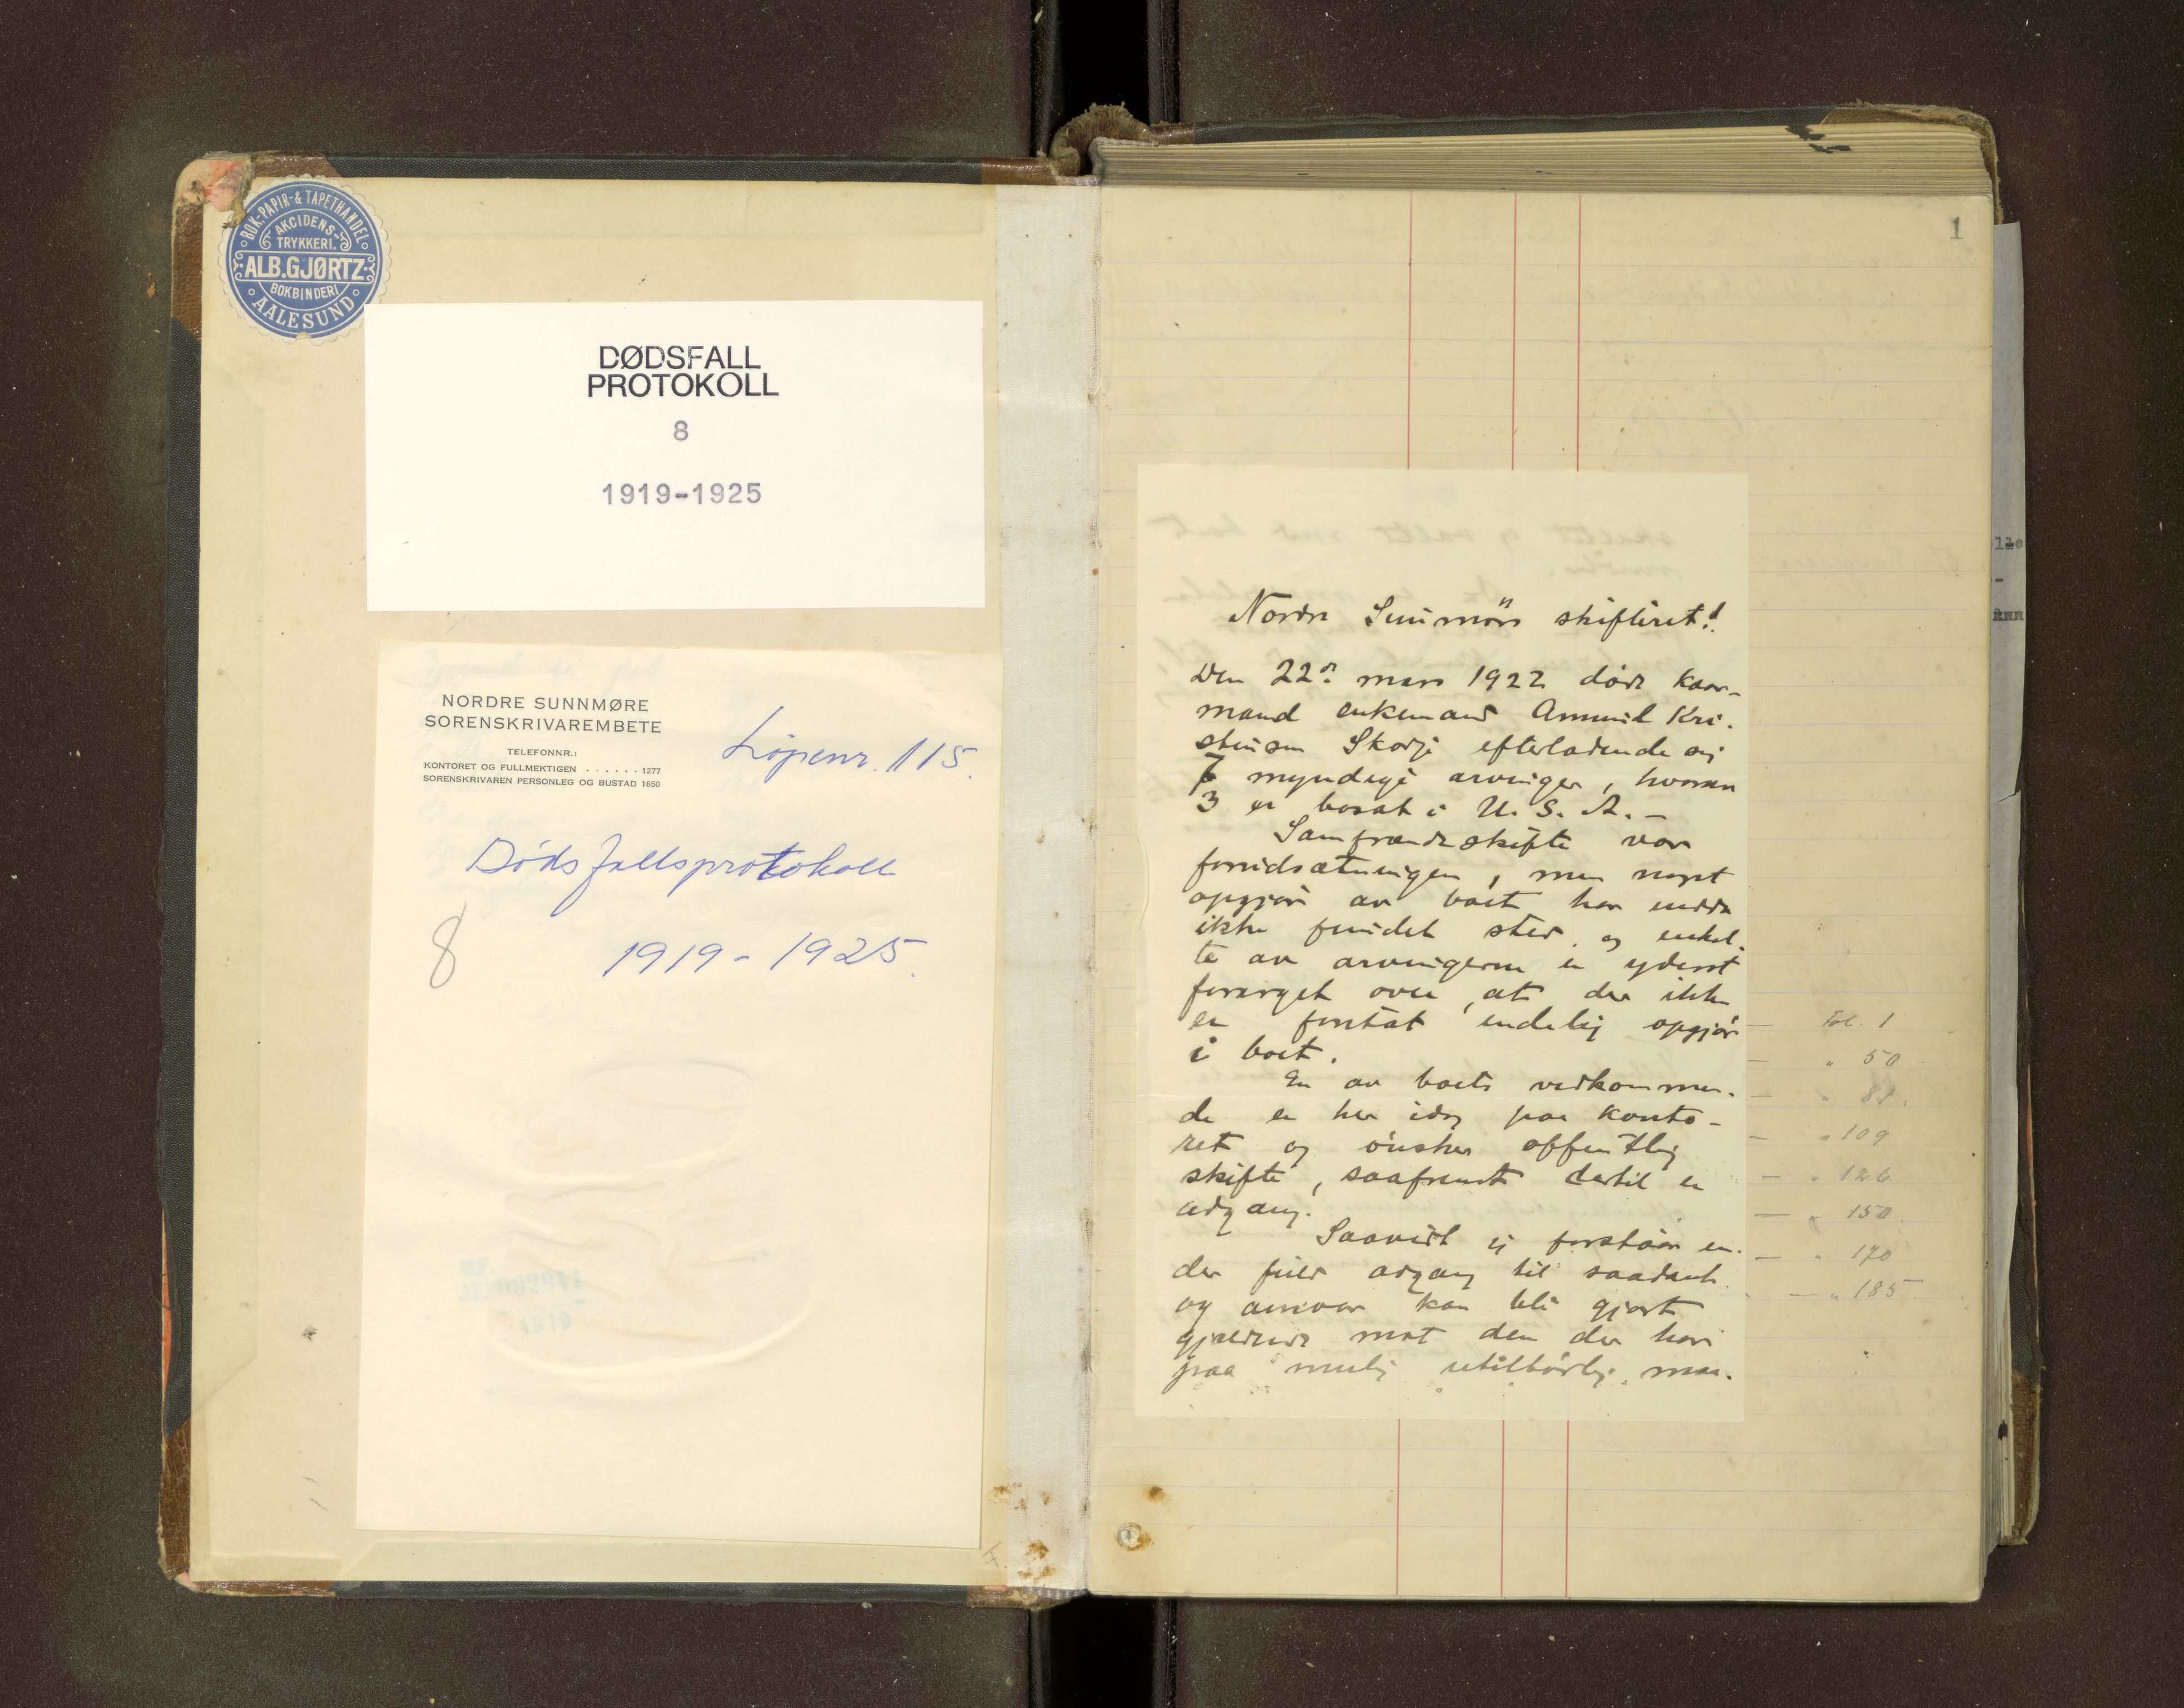 BOK-PAPIR-& TAPETHANDEL
AKCIDENS-
TRYKKERI.
ALB.GJØRTZ
BOKBINDERI
AALESUND
DØDSFALL
PROTOKOLL
8
1919-1925
NORDRE SUNNMØRE
SORENSKRIVAREMBETE
TELEFONNR.:
KONTORET OG FULLMEKTIGEN . . . . . . 1277
SORENSKRIVAREN PERSONLEG OG BUSTAD 1850
Løpenr. 115.
Dødsfallsprotokoll
8
1919-1925.
1
Nordre Sunmörs skifteret!
Den 22de mars 1922 døde kaar-
mand enkemand Ammund Kri-
stensen Skodje efterladende sig
7 myndige arvinger, hvorav
3 er bosat i U.S.A.-
Samfrændeskifte var
forudsætningen, men noget
opgjør av boet har endda
ikke fundet sted, og enkel-
te av arvingerne er yderst
forarget over, at der ikke
er foretat endelig opgjør
i boet.
En av boets vedkommen-
de er her idag paa konto-
ret og ønsker offentlig
skifte, saafremt dertil er
adgang.
Saavidt jeg forstaar er
der fuld adgang til saadant
og ansvar kan bli gjort
gjældende mot den der har
paa mulig utilbørlig maa-
Fol. 1
" 50
" 81.
" 109
" 126
" 150.
" 170
" 185